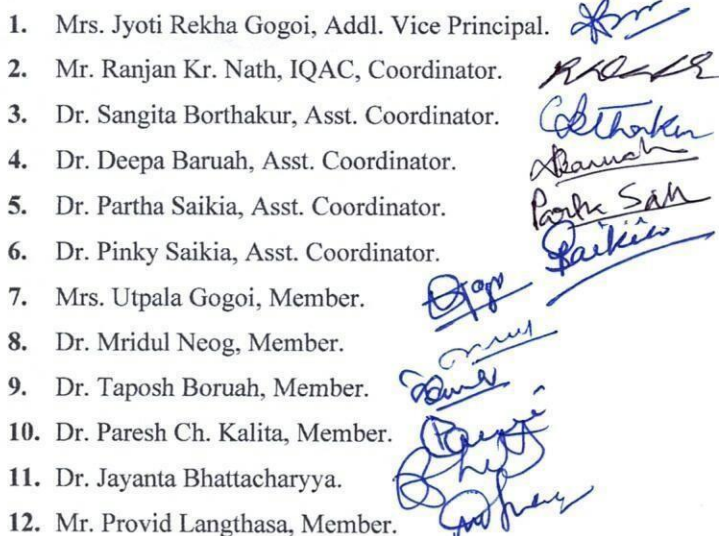 1. Mrs. Jyoti Rekha Gogoi, Addl. Vice Principal.
2. Mr. Ranjan Kr. Nath, IQAC, Coordinator.
3. Dr. Sangita Borthakur, Asst. Coordinator.
4. Dr. Deepa Baruah, Asst. Coordinator.
5. Dr. Partha Saikia, Asst. Coordinator.
6. Dr. Pinky Saikia, Asst. Coordinator. Saikia
7. Mrs. Utpala Gogoi, Member.
8. Dr. Mridul Neog, Member.
9. Dr. Taposh Boruah, Member.
10. Dr. Paresh Ch. Kalita, Member.
11. Dr. Jayanta Bhattacharyya.
12. Mr. Provid Langthasa, Member.